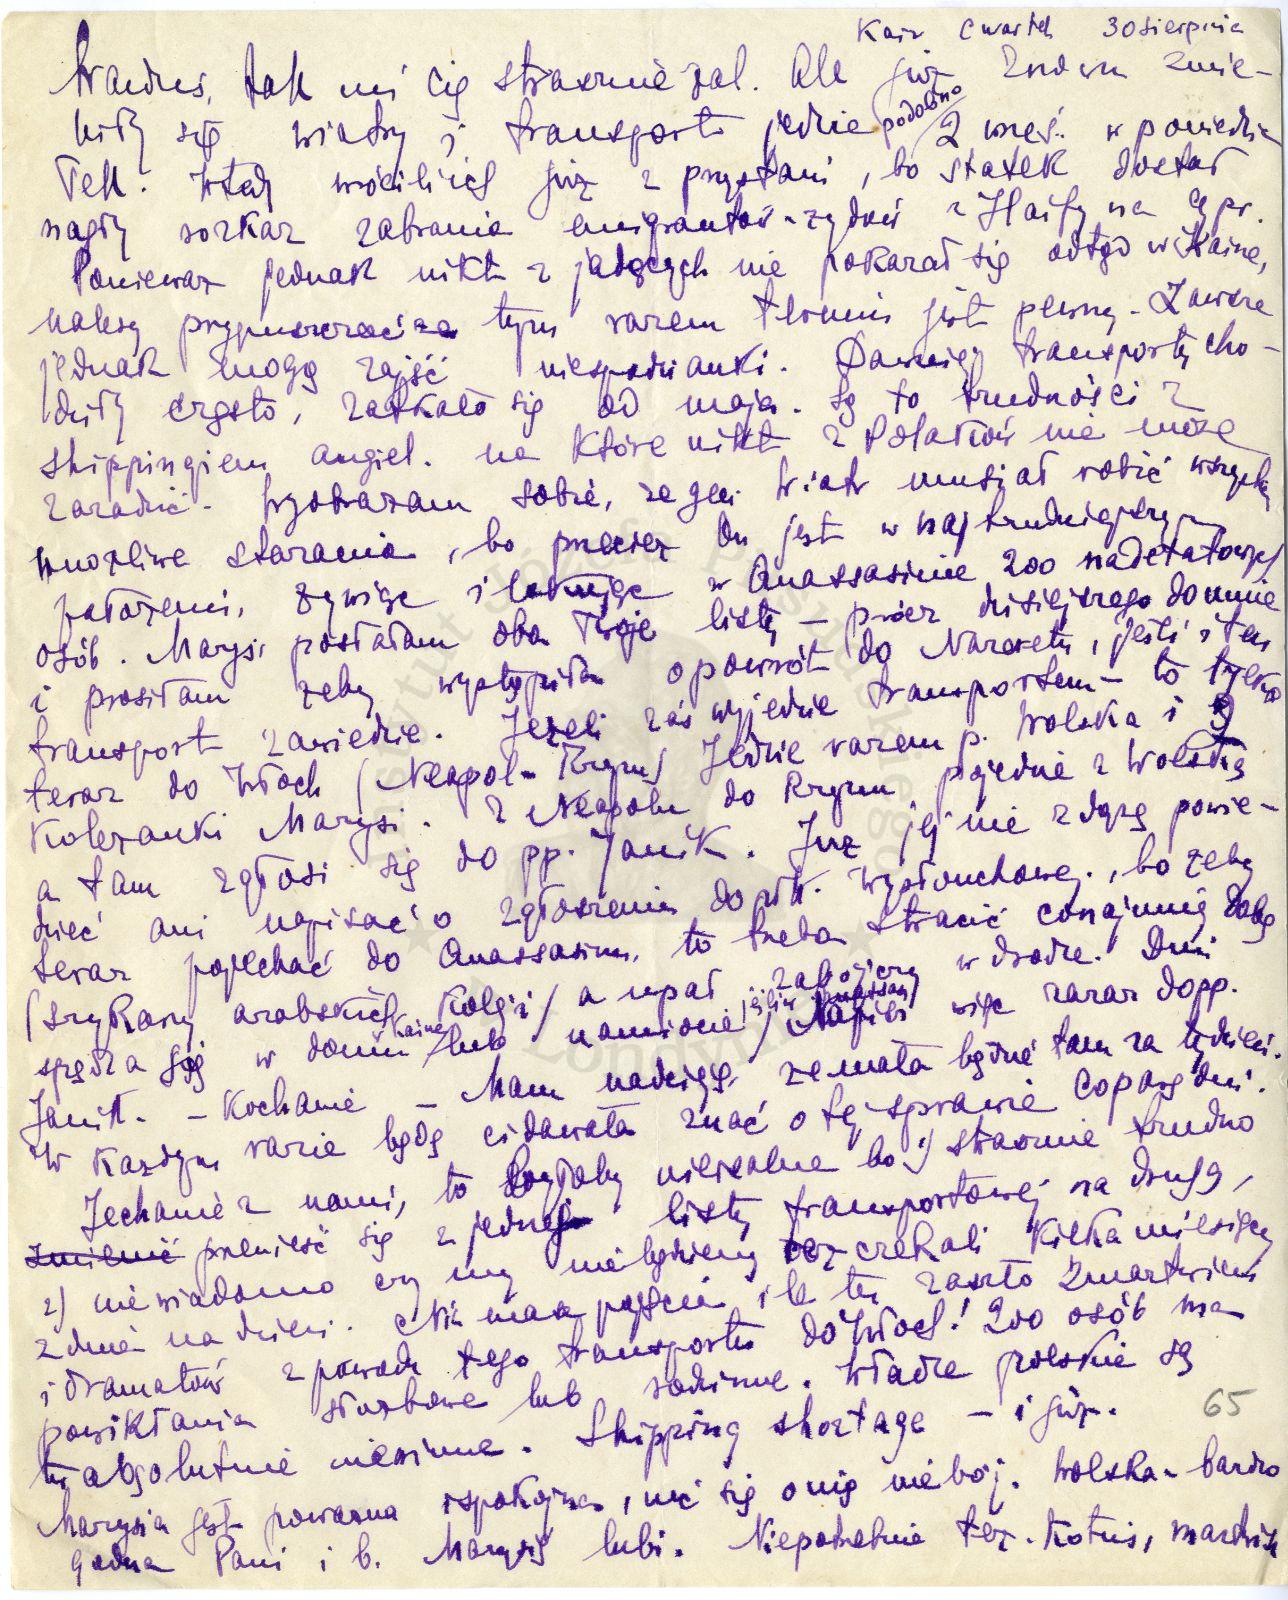 Kair Czwartek 30 sierpnia
strasznie żal. Ale już znowu zmie-
niły się wiatry i transport jedzie podobno 2 wrześ. w poniedzia
łek. Wtedy wrócili ich już z przystani, bo statek dostał
nagły rozkaz zabrania emigrantów-żydów z Haify na Cypr.
Ponieważ jednak nikt z jadących nie pokazał się odtąd w Kairze,
należy przypuszczać że tym razem termin jest pewny. Zawsze
jednak mogą zajść niespodzianki. Dawniej transporty cho-
dziły często, zatkało się od maja. Są to trudności z
shippingiem angiel. na które nikt z Polaków nie może
zaradzić. Wyobrażam sobie, że gen. Wiatr musiał robić wszystkie
możliwe starania, bo przecież On jest w najtrudniejszym
położeniu, żywiąc i lokując w Quassasinie 200 nadetatowych
osób. Marysi posłałam oba Twoje listy – przez dzisiejszego
i prosiłam żeby wystąpiła o powrót do Nazaretu, jeśli i ten
transport zawiedzie. Jeżeli zaś wyjedzie transportem – to tylko
teraz do Włoch (Neapol – Rzym) Jedzie razem p. Wolska i 3
koleżanki Marysi. Z Neapolu do Rzymu pojedzie z Wolską
a tam zgłosi się do pp. Janik. Już jej nie zdążę powie-
dzieć ani napisać o zgłoszeniu do Wysłouchowej, bo żeby
teraz pojechać do Quassasinu, to trzeba stracić conajmniej dobę
(szykany arabskich kolei) a upał zabójczy w drodze. Dni
spędza się w domu /Kair/ lub namiocie /jeśli Quassasin/ Napisz więc zaraz do pp.
Janik. – Kochanie – Mam nadzieję, że mała będzie tam za tydzień.
W każdym razie będę ci dawała znać o tej sprawie co parę dni.
Jechanie z nami, to byłoby nierealne bo 1) strasznie trudno
zmienić przenieść się z jednej listy transportowej na drugą,
2) niewiadomo czy my nie będziemy też czekali kilka miesięcy
z dnia na dzień. Nie masz pojęcia ile tu zaszło zmartwień
i dramatów z powodu tego transportu do Włoch! 200 osób ma
powikłania służbowe lub rodzinne. Władze polskie są
tu absolutnie niewinne. Shipping shortage – i już.
65
Marysia jest poważna i spokojna, nic się o nią nie bój. Wolska – bardzo
godna Pani i b. Marysię lubi. Niepotrzebnie też Kotuś, martwisz